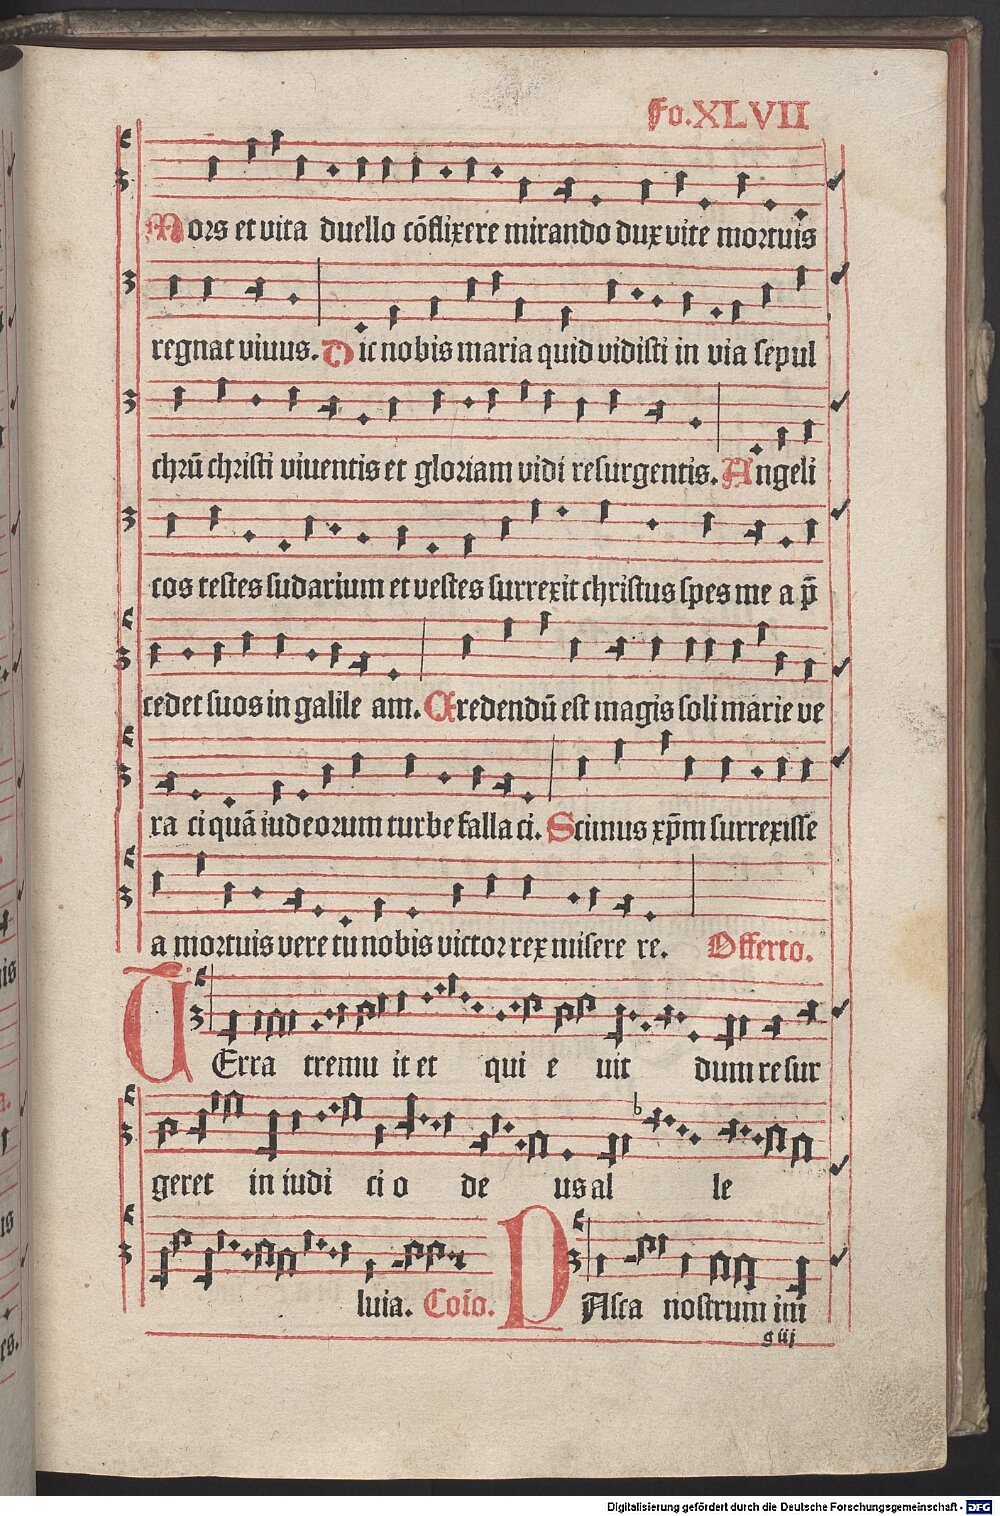 Fo.XLVII
Mors et vita duello cõflixere mirando dux vite mortuis
regnat viuus. Dic nobis maria quid vidisti in via sepul
chrũ christi viuentis et gloriam vidi resurgentis. Angeli
cos testes sudarium et vestes surrexit christus spes me a p̄
cedet suos in galile am. Credendũ est magis soli marie ve
ra ci quã iudeorum turbe falla ci. Scimus xp̄m surrexisse
a mortuis vere tu nobis victor rex misere re. Offerto.
TErra tremu it et qui e uit dum resur
geret in iudi ci o de us al le
luia. Coĩo. PAsca nostrum im
g iij
Digitalisierung gefördert durch die Deutsche Forschungsgemeinschaft - DFG